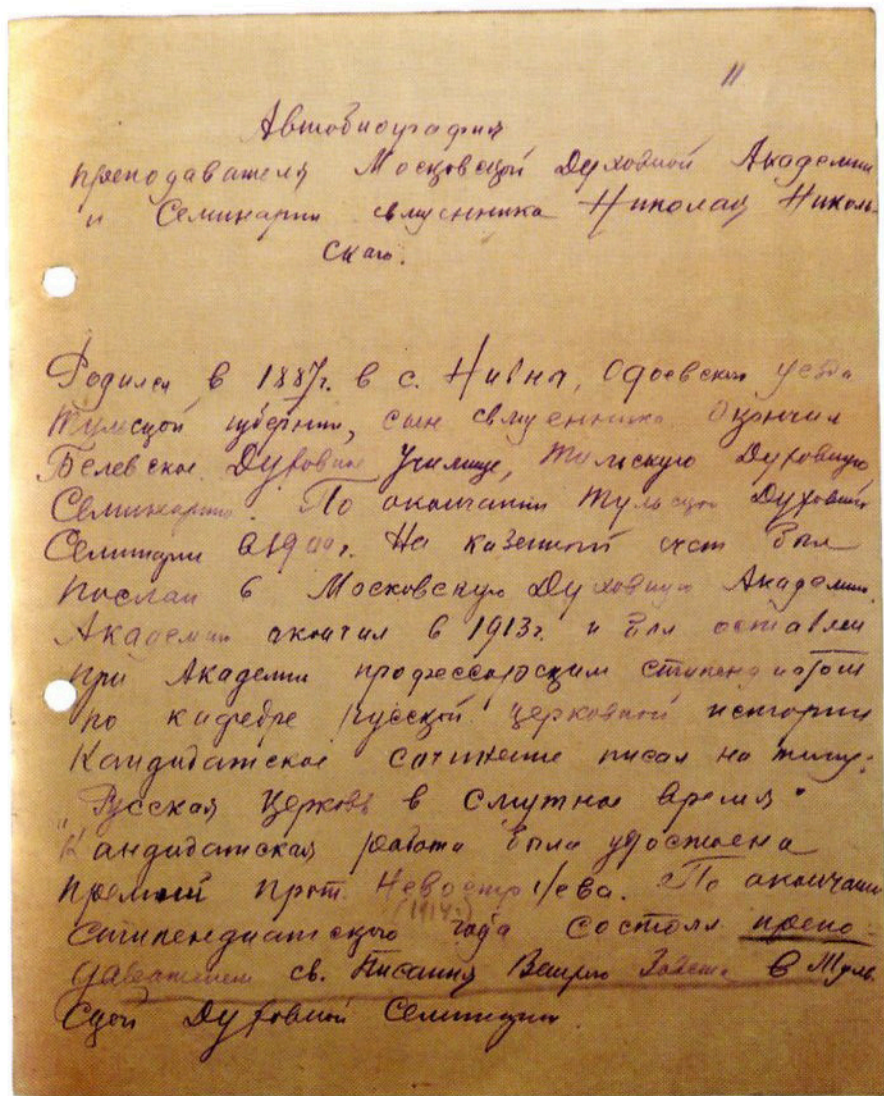 11
Автобиография
преподавателя Московской Духовной Академии
и Семинарии священника Николая Николь-
ского.
Родился в 1887г. в с. Ивна, Одоевского уезда
Тульской губернии, сын священника. Окончил
Белевское Духовное Училище, Тульскую Духовную
Семинарию. По окончании Тульской Духовной
Семинарии в 1909г. На казенный счет был
послан в Московскую Духовную Академию.
Академию окончил в 1913г. и был оставлен
при Академии профессорским стипендиатом
по кафедре русской церковной истории
Кандидатское сочинение писал на тему:
"Русская Церковь в Смутное время"
Кандидатская работа была удостоена
премии прот. Невоструева. По окончании
стипендиатского (1914г.) года состоял препо-
давателем св. Писания Ветхого Завета в Туль-
ской Духовной Семинарии